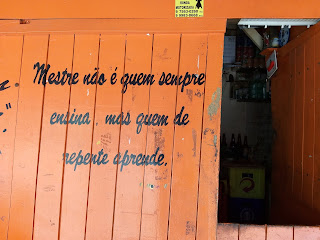 Mestre não é quem sempre
ensina, mas quem de
repente aprende.